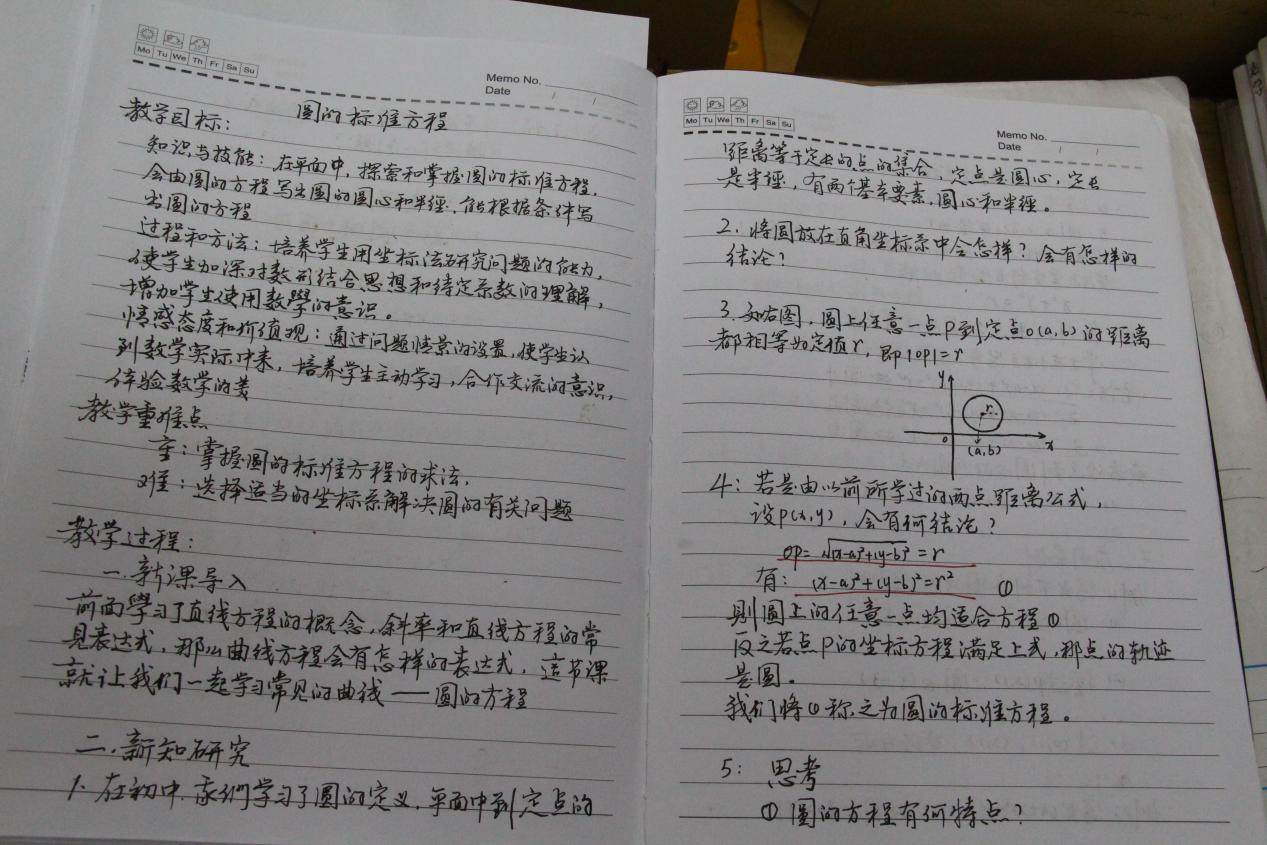 Mo Tu We Th Fr Sa Su
Memo No.
Date / /
圆的标准方程
教学目标:
知识与技能:在平面中,探索和掌握圆的标准方程.
会由圆的方程写出圆的圆心和半径,能根据条件写
出圆的方程
过程和方法:培养学生用坐标法研究问题的能力,
使学生加深对数形结合思想和待定系数的理解,
增加学生使用数學的意识。
情感态度和价值观:通过问题情景的设置,使学生认
到数学实际中来,培养学生主动学习,合作交流的意识,
体验数学的美
教学重难点
重:掌握圆的标准方程的求法,
难:选择适当的坐标系解决圆的有关问题
教学过程:
一.新课导入
前面學习了直线方程的概念,斜率和直线方程的常
见表达式,那么曲线方程会有怎样的表达式,這节课
就让我们一起学习常见的曲线——圆的方程
二.新知研究
1.在初中,我们学习了圆的定义,平面中到定点的
Mo Tu We Th Fr Sa Su
Memo No.
Date / /
距离等于定长的点的集合,定点是圆心,定长
是半径,有两个基本要素,圆心和半径。
2.将圆放在直角坐标系中会怎样?会有怎样的
结论?
3.如右图,圆上任意一点P到定点o(a,b)的距离
都相等如定值r,即|op|=r
y
r
o
x
(a,b)
4:若是由以前所学过的两点距离公式,
设P(x,y),会有何结论?
op=√(x-a)²+(y-b)²=r
有:(x-a)²+(y-b)²=r² ①
则圆上的任意一点均适合方程①
反之若点P的坐标方程满足上式,那点的轨迹
是圆。
我们将①称之为圆的标准方程。
5:思考
①圆的方程有何特点?